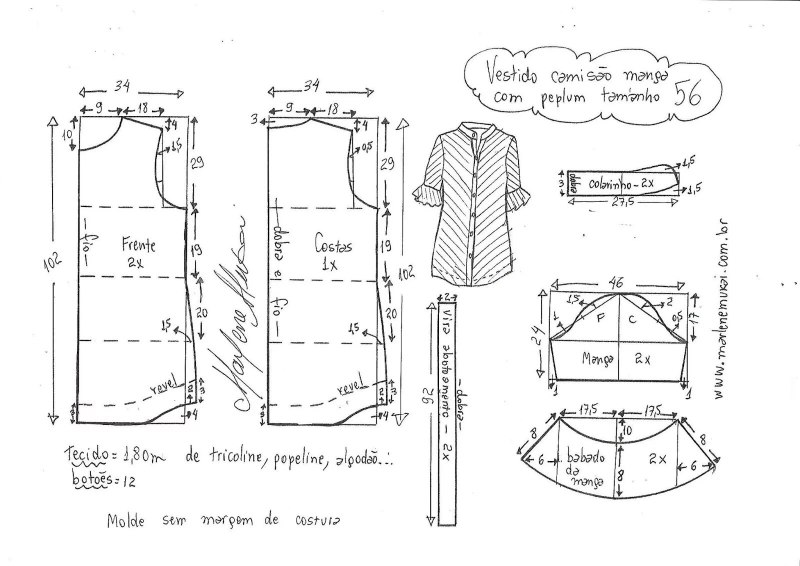 Vestido camisão manga
com peplum tamanho 56
34
9
18
10
4
1,5
29
fio
Frente
2x
19
102
20
1,5
revel
3
2
3
4
34
9
18
3
4
0,5
29
dobra e fio
Costas
1x
19
102
20
1,5
revel
3
2
3
4
Marlene Mukai
2
Vira abotoamento - 2x
-dobra-
92
dobra
Colarinho - 2x
1,5
1,5
3
27,5
www.marlenemukai.com.br
46
1,5
2
1
F
C
0,5
17
24
Manga
2x
1
1
17,5
17,5
10
8
8
6
6
babado
da
manga
2x
8
Tecido= 1,80m de tricoline, popeline, algodão...
botões= 12
Molde sem margem de costura